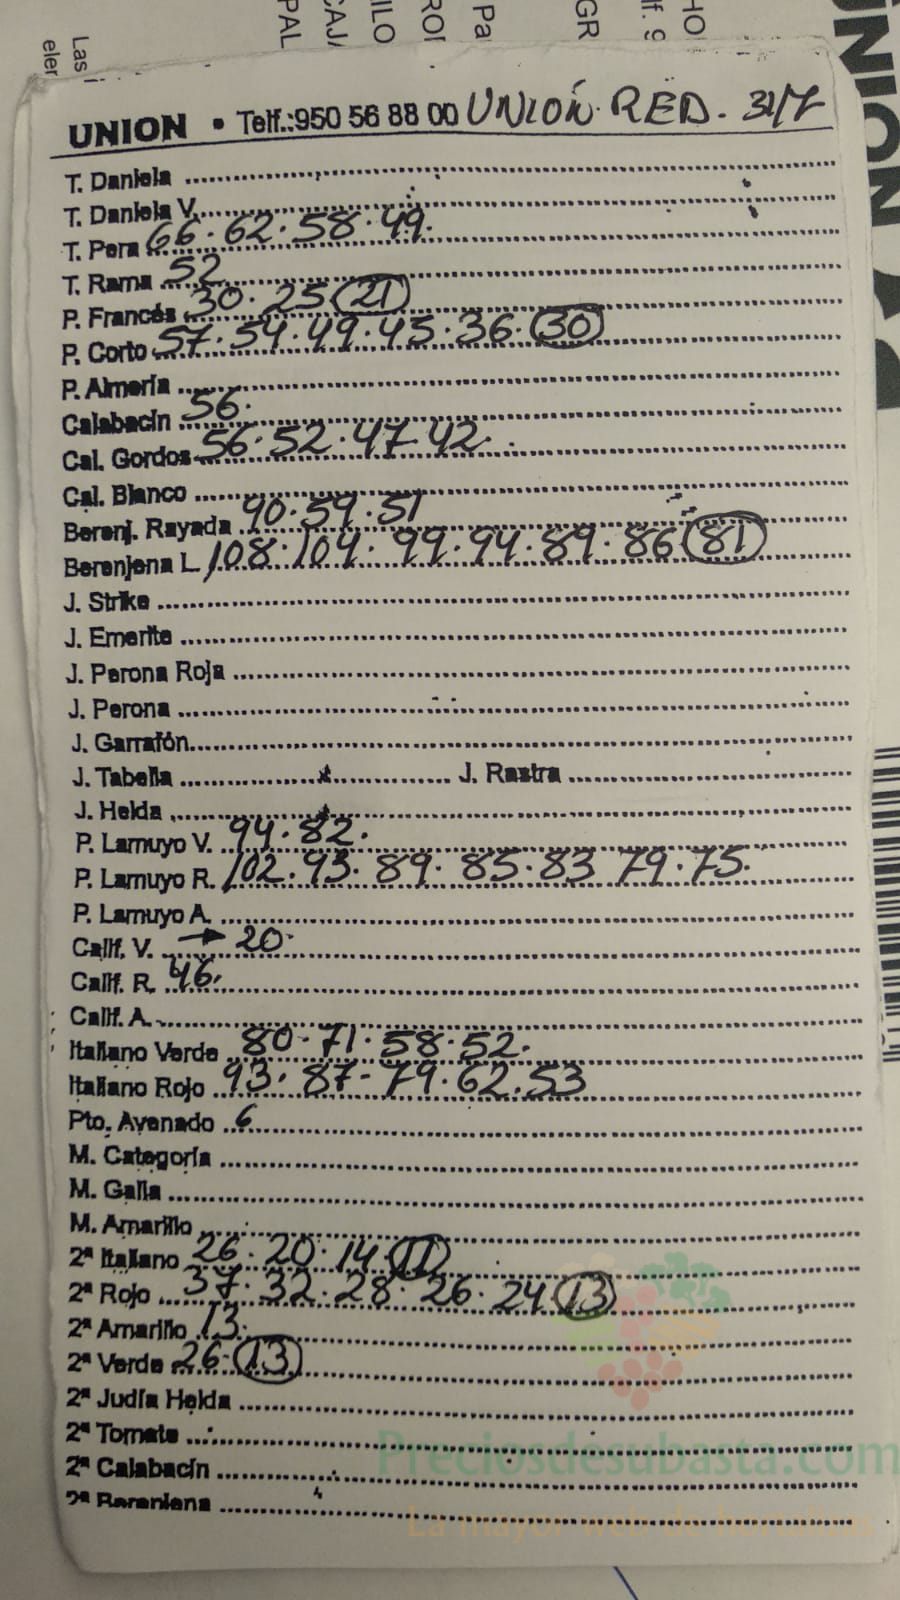 Las
eler
PAL
CAJ
ILO
Pa
GR
HO
UNION
UNION • Telf.:950 56 88 00 UNIÓN. RED. 31/7
T. Daniela
T. Daniela V.
T. Pera 66. 62. 58. 49.
T. Rama 52
P. Francés 30. 25 21
P. Corto 57. 54. 49. 45. 36. 30
P. Almería
Calabacín 56.
Cal. Gordos 56. 52. 47 42.
Cal. Blanco
Berenj. Rayada 90. 59. 51
Berenjena L 108. 104. 99. 94. 89. 86 81
J. Strike
J. Emerite
J. Perona Roja
J. Perona
J. Garrafón
J. Tabella J. Rastra
J. Helda
P. Lamuyo V. 94. 82.
P. Lamuyo R. 102. 93. 89. 85. 83 79. 75.
P. Lamuyo A.
Calif. V. → 20.
Calif. R. 46.
Calif. A.
Italiano Verde 80. 71. 58. 52.
Italiano Rojo 93. 87. 79. 62. 53
Pto. Avenado 6
M. Categoría
M. Galia
M. Amarillo
2ª Italiano 26. 20. 14. 11
2ª Rojo 37. 32. 28. 26. 24 13
2ª Amarillo 13.
2ª Verde 26. 13
2ª Judía Helda
2ª Tomate
2ª Calabacín
2ª Berenjena
Preciosdesubasta.com
La mayor web de hortalizas